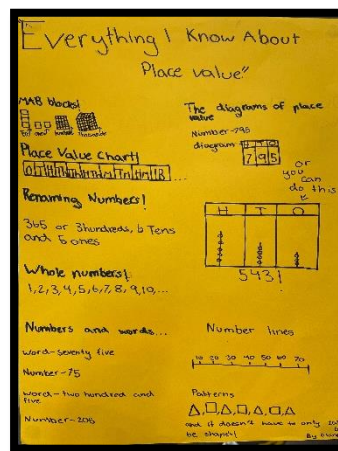 Everything I Know About
Place value"
MAB blocks!
Place Value Chart!
Renaming Numbers!
365 or 3hundreds, 6 Tens
and 5 ones
Whole numbers!
1,2,3,4,5,6,7,8,9,10,...
Numbers and words...
word-seventy five
Number-75
word-two hundred and
five
Number-205
The diagrams of place
value
Number-795
diagram
H T O
7 9 5
or
you
can
do this
H T O
543!
Number lines
10 20 30 40 50 60 70
Patterns
and it doesn't have to only
be shapes!
By